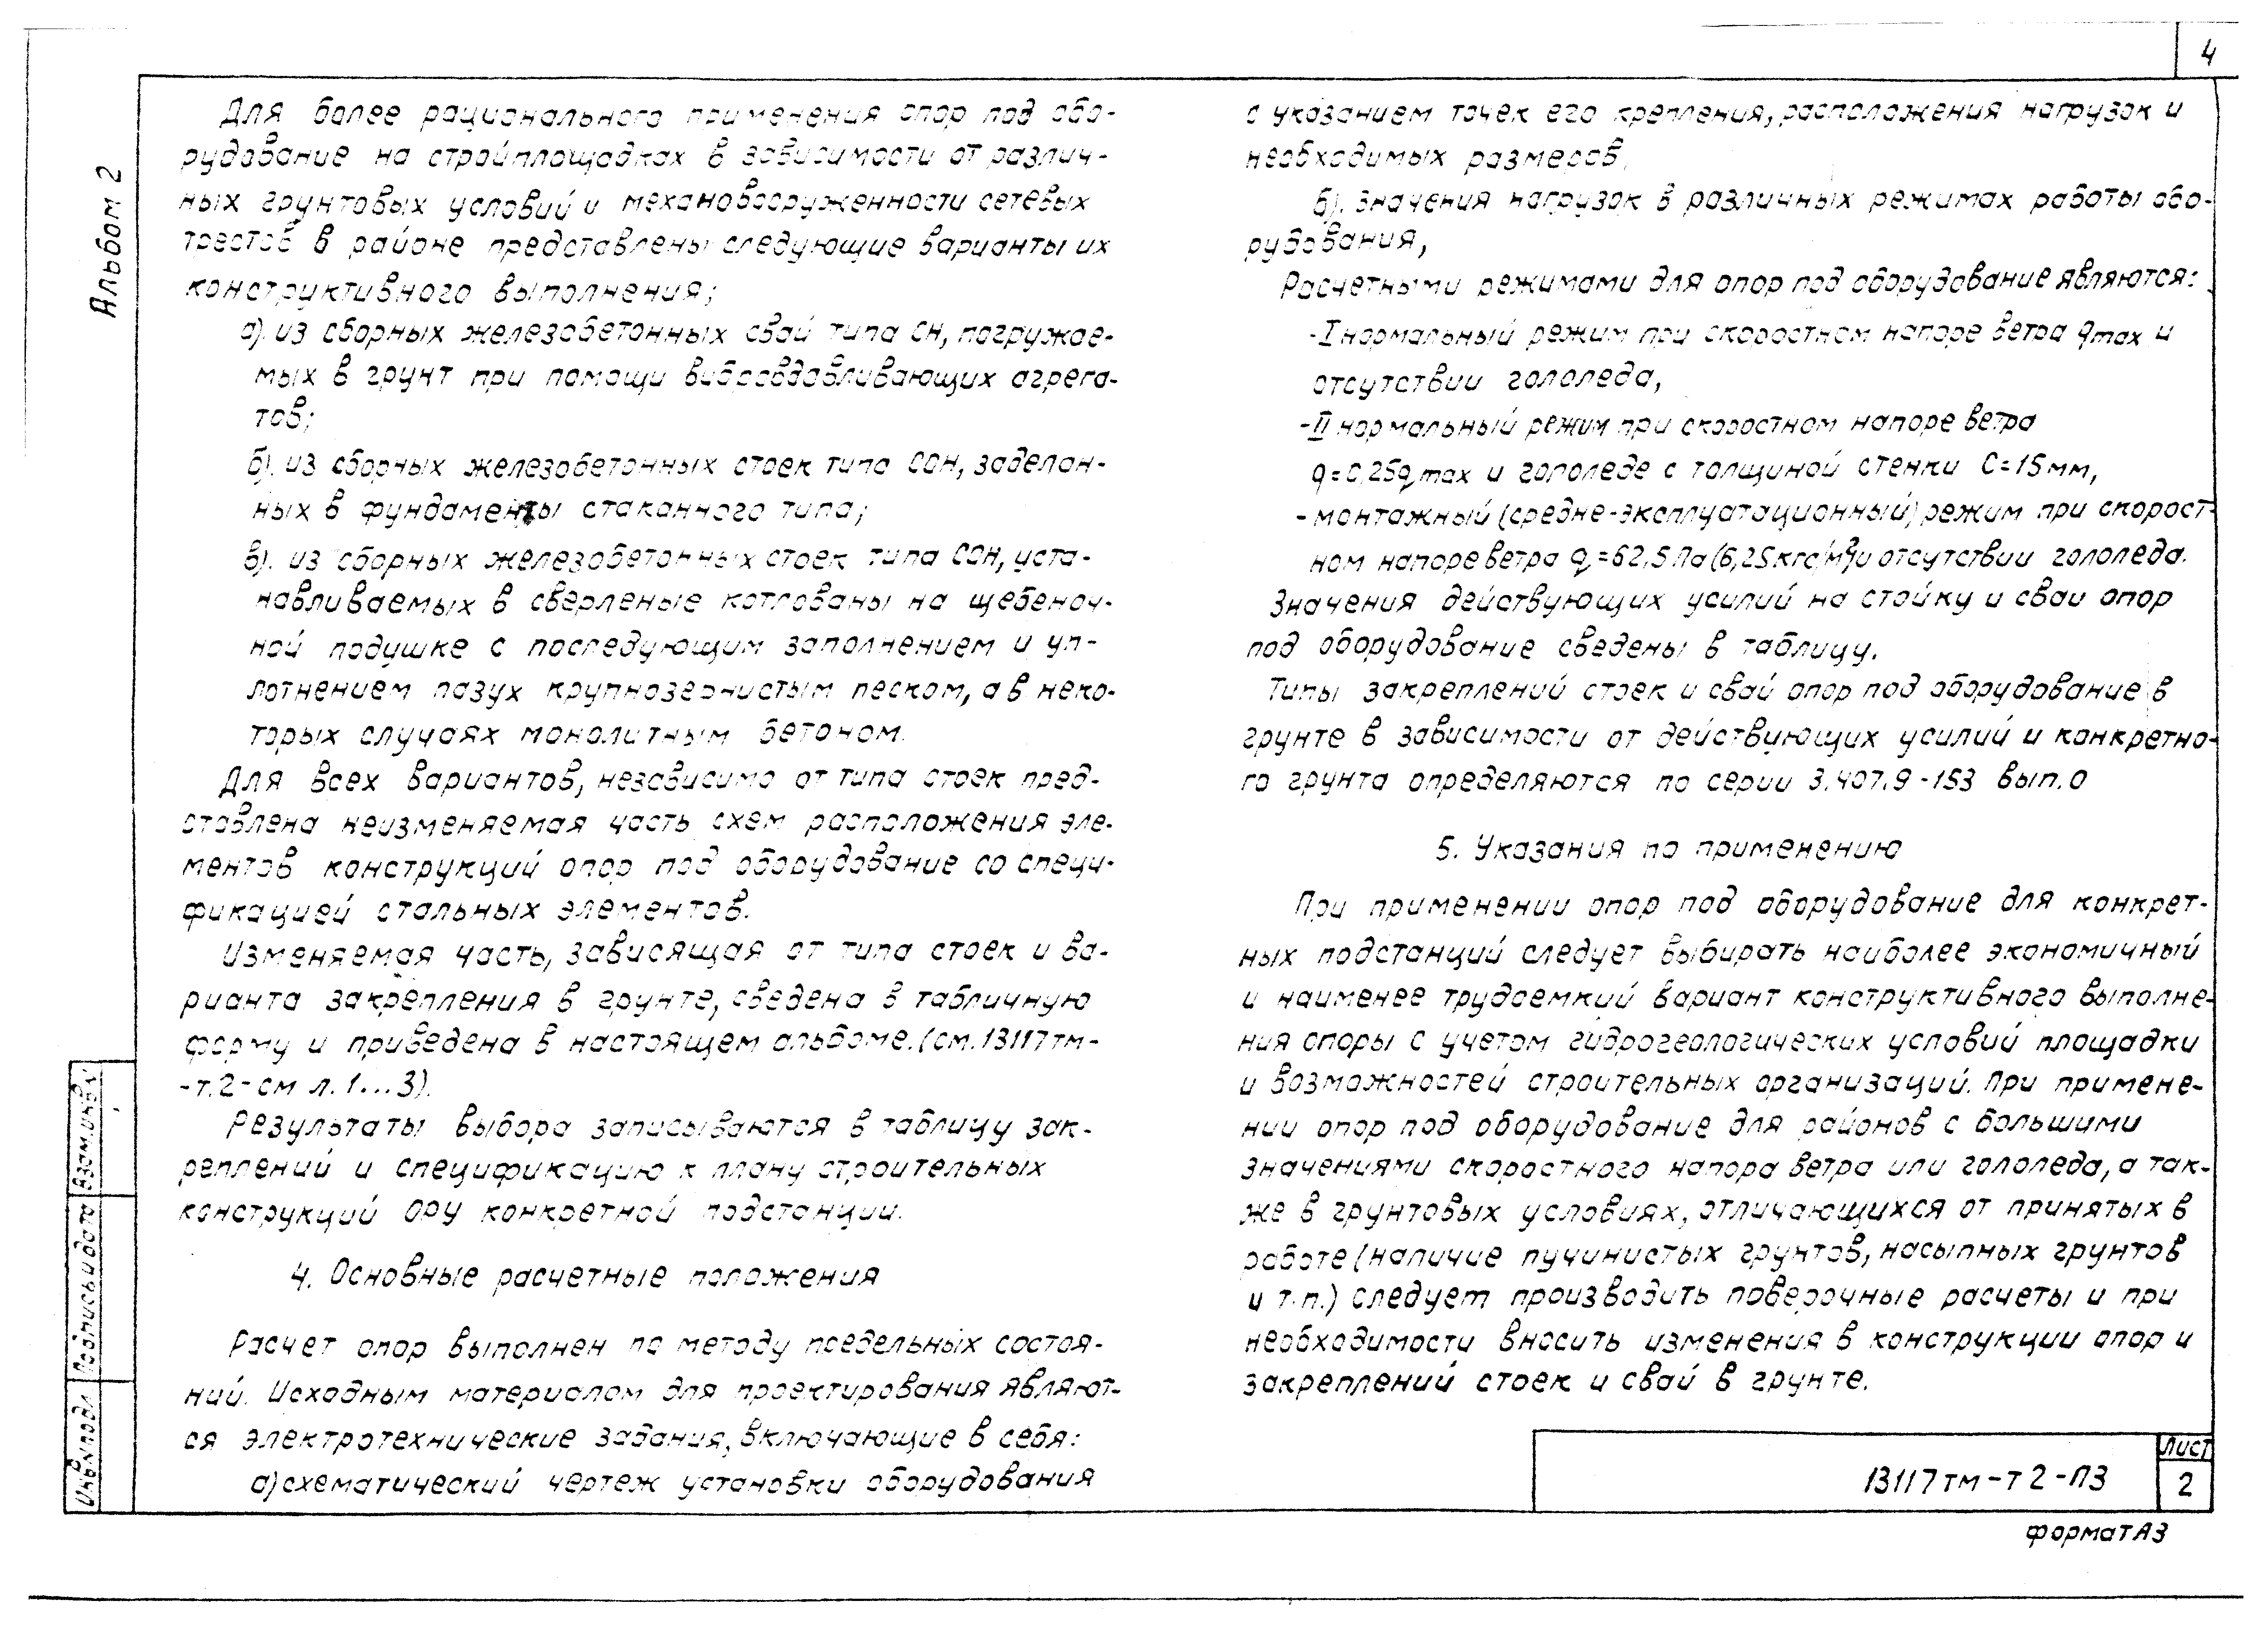 4
Альбом 2
Для более рационального применения опор под обо-
рудование на стройплощадках в зависимости от различ-
ных грунтовых условий и механовооруженности сетевых
трестов в районе представлены следующие варианты их
конструктивного выполнения;
а). из сборных железобетонных свай типа СН, погружае-
мых в грунт при помощи вибровдавливающих агрега-
тов;
б). из сборных железобетонных стоек типа СОН, заделан-
ных в фундаменты стаканного типа;
в). из сборных железобетонных стоек типа СОН, уста-
навливаемых в сверленые котлованы на щебеноч-
ной подушке с последующим заполнением и уп-
лотнением пазух крупнозернистым песком, а в неко-
торых случаях монолитным бетоном.
Для всех вариантов, независимо от типа стоек пред-
ставлена неизменяемая часть схем расположения эле-
ментов конструкций опор под оборудование со специ-
фикацией стальных элементов.
Изменяемая часть, зависящая от типа стоек и ва-
рианта закрепления в грунте, сведена в табличную
форму и приведена в настоящем альбоме. (см. 13117тм-
-т.2-см л. 1...3).
Результаты выбора записываются в таблицу зак-
реплений и спецификацию к плану строительных
конструкций ОРУ конкретной подстанции.
4. Основные расчетные положения
Расчет опор выполнен по методу предельных состоя-
ний. Исходным материалом для проектирования являют-
ся электротехнические задания, включающие в себя:
а) схематический чертеж установки оборудования
с указанием точек его крепления, расположения нагрузок и
необходимых размеров,
б). значения нагрузок в различных режимах работы обо-
рудования,
Расчетными режимами для опор под оборудование являются:
-I нормальный режим при скоростном напоре ветра qmax и
отсутствии гололеда,
-II нормальный режим при скоростном напоре ветра
q=0,25qmax и гололеде с толщиной стенки С=15мм,
-монтажный (средне-эксплуатационный) режим при скорост-
ном напоре ветра q=62,5Па (6,25кгс/м²) и отсутствии гололеда.
Значения действующих усилий на стойку и сваи опор
под оборудование сведены в таблицу.
Типы закреплений стоек и свай опор под оборудование в
грунте в зависимости от действующих усилий и конкретно-
го грунта определяются по серии 3.407.9-153 вып.0
5. Указания по применению
При применении опор под оборудование для конкрет-
ных подстанций следует выбирать наиболее экономичный
и наименее трудоемкий вариант конструктивного выполне-
ния опоры с учетом гидрогеологических условий площадки
и возможностей строительных организаций. При примене-
нии опор под оборудование для районов с большими
значениями скоростного напора ветра или гололеда, а так-
же в грунтовых условиях, отличающихся от принятых в
работе (наличие пучинистых грунтов, насыпных грунтов
и т.п.) следует производить поверочные расчеты и при
необходимости вносить изменения в конструкции опор и
закреплений стоек и свай в грунте.
Взам.инв.N
Подпись и дата
Инв.N подл
13117тм-т2-ПЗ
Лист
2
формат А3